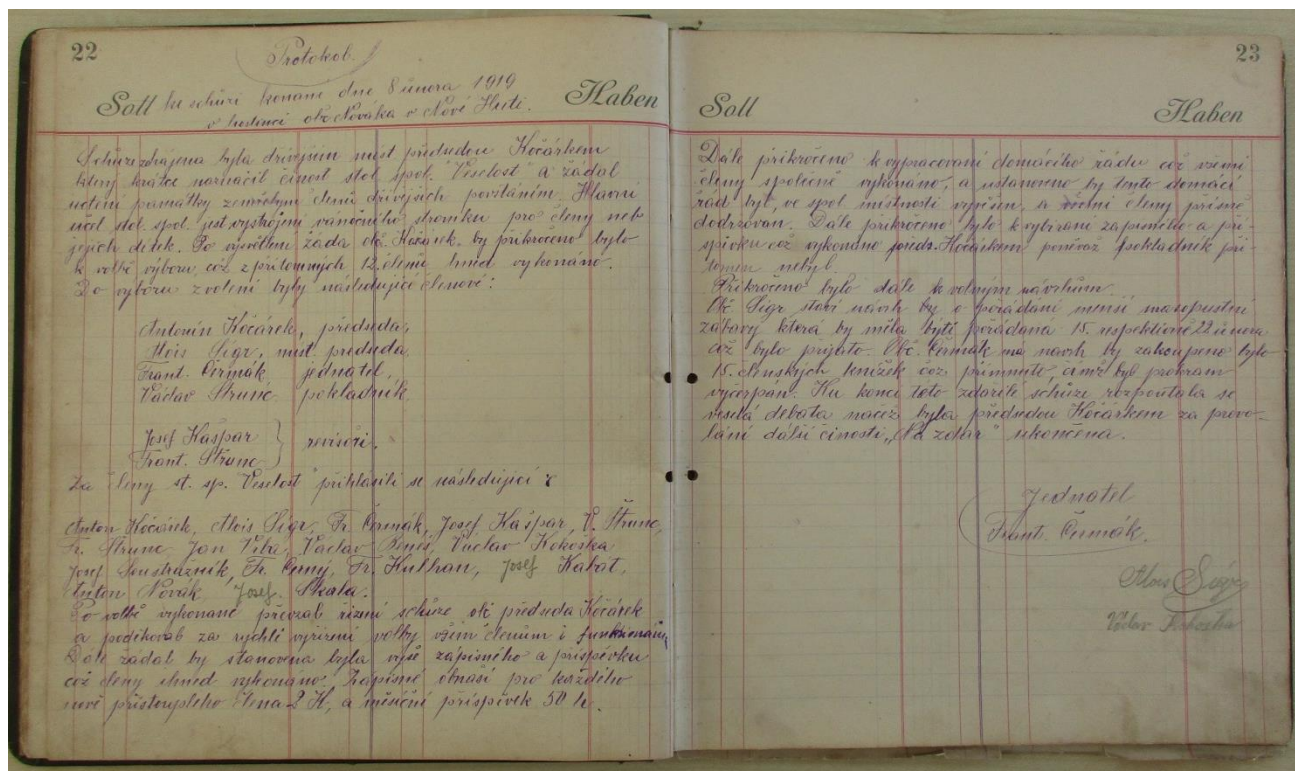 22
Protokol.
Soll ke schůzi konané dne 8 února 1919 Haben
v hostinci obč. Nováka v Nové Huti.
Schůze zahájena byla dřívejším míst. předsedou Kočárkem
který krátce naznačil činost stol. spol. Veselost a žádal
uctění památky zemřelých členů dřívejších povstáním. Hlavní
účel stol. spol. jest vystrojení vánočního stromku pro členy neb
jejich dítek. Po vysvětlení žádá obč. Kočárek, by přikročeno bylo
k volbě výboru, což z přítomných 12. členů hned vykonáno.
Do výboru zvoleni byly následující členové:
Antonín Kočárek, předseda,
Alois Sigr, míst. předseda
Frant. Čermák jednatel,
Václav Štrunc pokladník.
Josef Kašpar
Frant. Štrunc } revisoři.
Za členy st. sp. Veselost přihlásili se následující:
Anton Kočárek, Alois Sigr, Fr. Čermák, Josef Kašpar, V. Štrunc,
Fr. Štrunc, Jan Vlba, Václav Beneš, Václav Kokoška
Josef Soustružník, Fr. Černý, Fr. Kulhan, Josef Kabat,
Anton Novák, Josef Skala.
Po volbě vykonané převzal řízení schůze obč. předseda Kočárek
a poděkoval za rychlé vyřízení volby všem členům i funkcionářům
Dále žádal by stanovena byla výše zápisného a příspěvku
což členy ihned vykonáno. Zápisné obnáší pro každého
nově přistouplého člena 2 K, a měsíční příspěvek 50 h.
23
Soll Haben
Dále přikročeno k vypracování domácího řádu což všemi
členy společně vykonáno, a ustanoveno by tento domácí
řád byl ve spol. místnosti vyvěšen, a všemi členy přísně
dodržován. Dále přikročeno bylo k vybírání zápisného a pří-
spěvku což vykonáno předs. Kočárkem poněvač pokladník pří-
tomen nebyl.
Přikročeno bylo dále k volným návrhům.
Obč. Sigr staví návrh by o pořádání menší masopustní
zábavy která by měla býti pořádána 15. respektivně 22 února
což bylo přijato. Obč. Čermák má návrh by zakoupeno bylo
15. členských knížek což přijmuto čímž byl prokram
vyčerpán. Ku konci této zdařilé schůze rozpoutala se
veselá debata načež byla předsedou Kočárkem za provo-
lání další činosti „Na zdar" ukončena.
Jednatel
Frant. Čermák.
Alois Sigr
Václav Kokoška